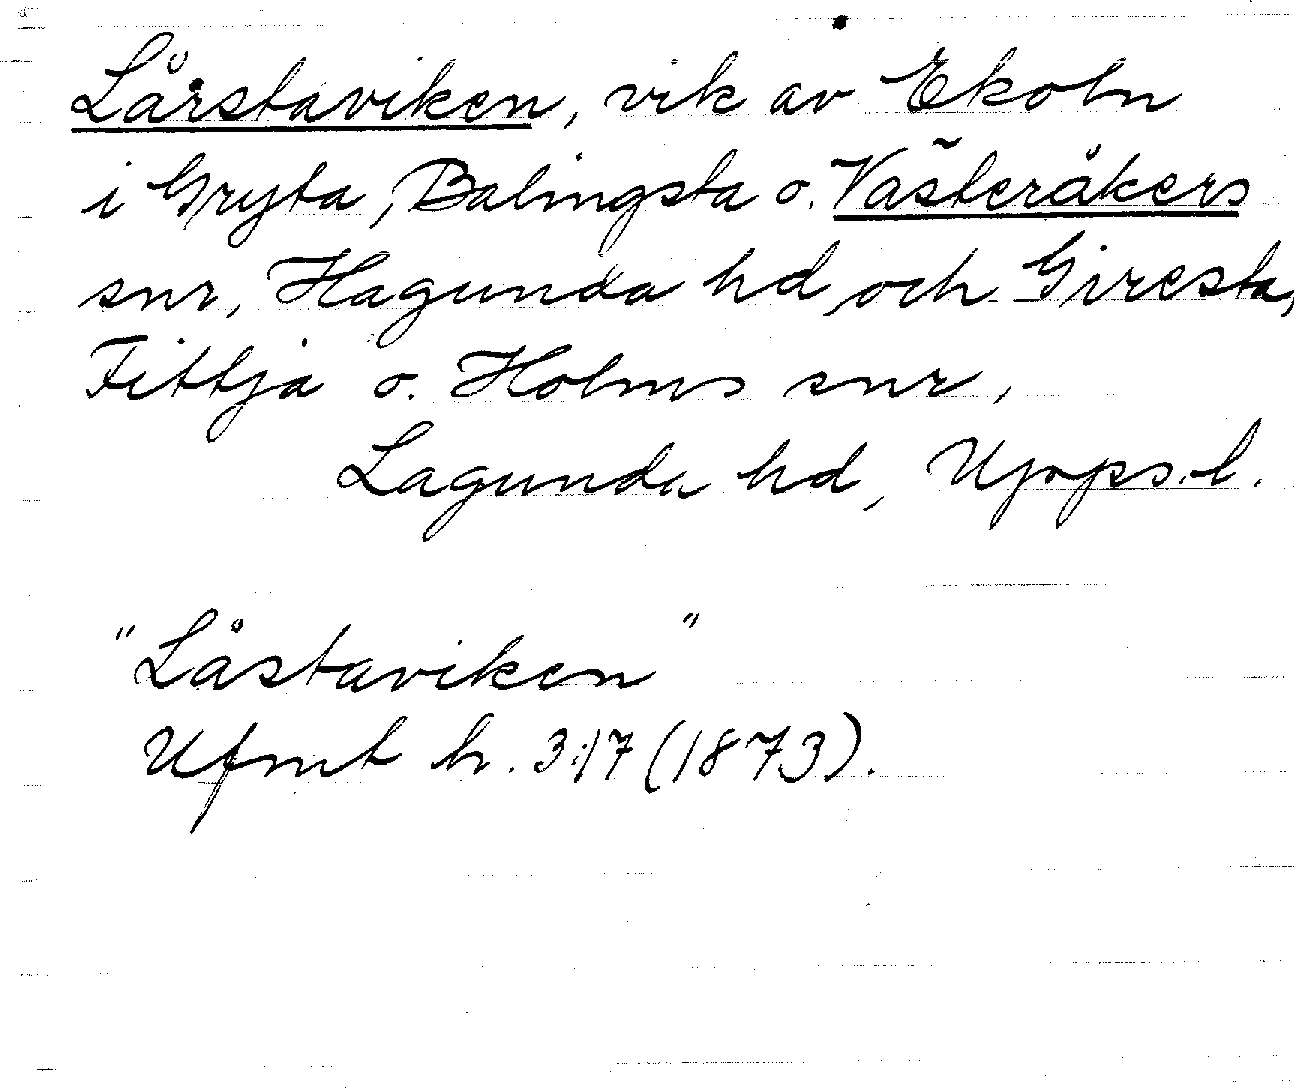 Lårstaviken, vik av Ekoln
i Gryta, Balingsta o. Västeråkers
snr, Hagunda hd, och Giresta,
Fittja o. Holms snr,
Lagunda hd, Upps. l.
"Låstaviken"
Ufmt h. 3:17 (1873).